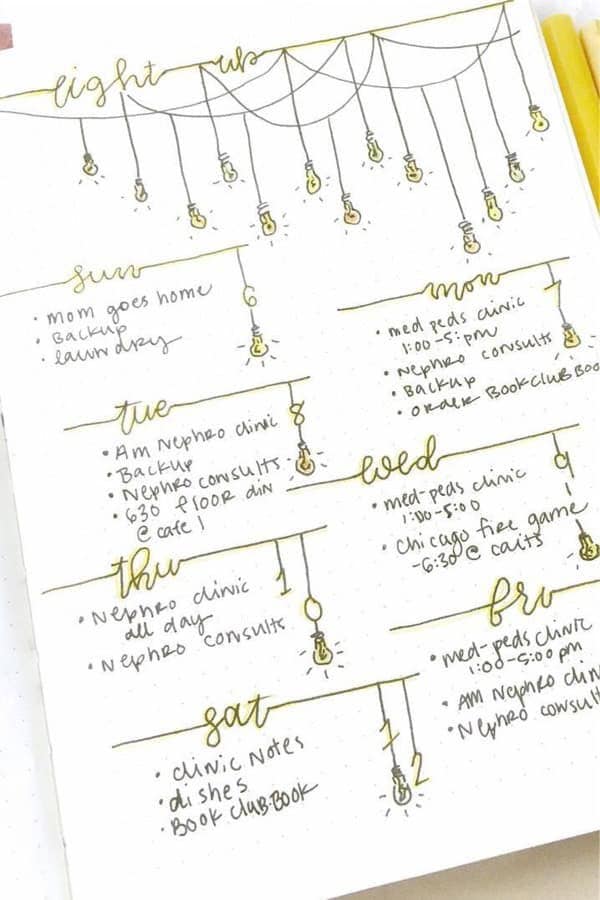 light up
sun
6
• mom goes home
• Backup
• laundry
mon
7
• med peds clinic
1:00-5:pm
• Nephro consults
• Backup
• order Book Club Boo
tue
8
• Am Nephro clinic
• Backup
• Nephro consults
• 630 floor din
@ cafe 1
wed
9
• med-peds clinic
1:00-5:00
• Chicago fire game
-6:30 @ caits
thu
10
• Nephro clinic
all day
• Nephro consults
fri
• med-peds clinic
1:00-5:00 pm
• AM Nephro clin
• Nephro consult
sat
12
• clinic notes
• dishes
• Book Club-Book